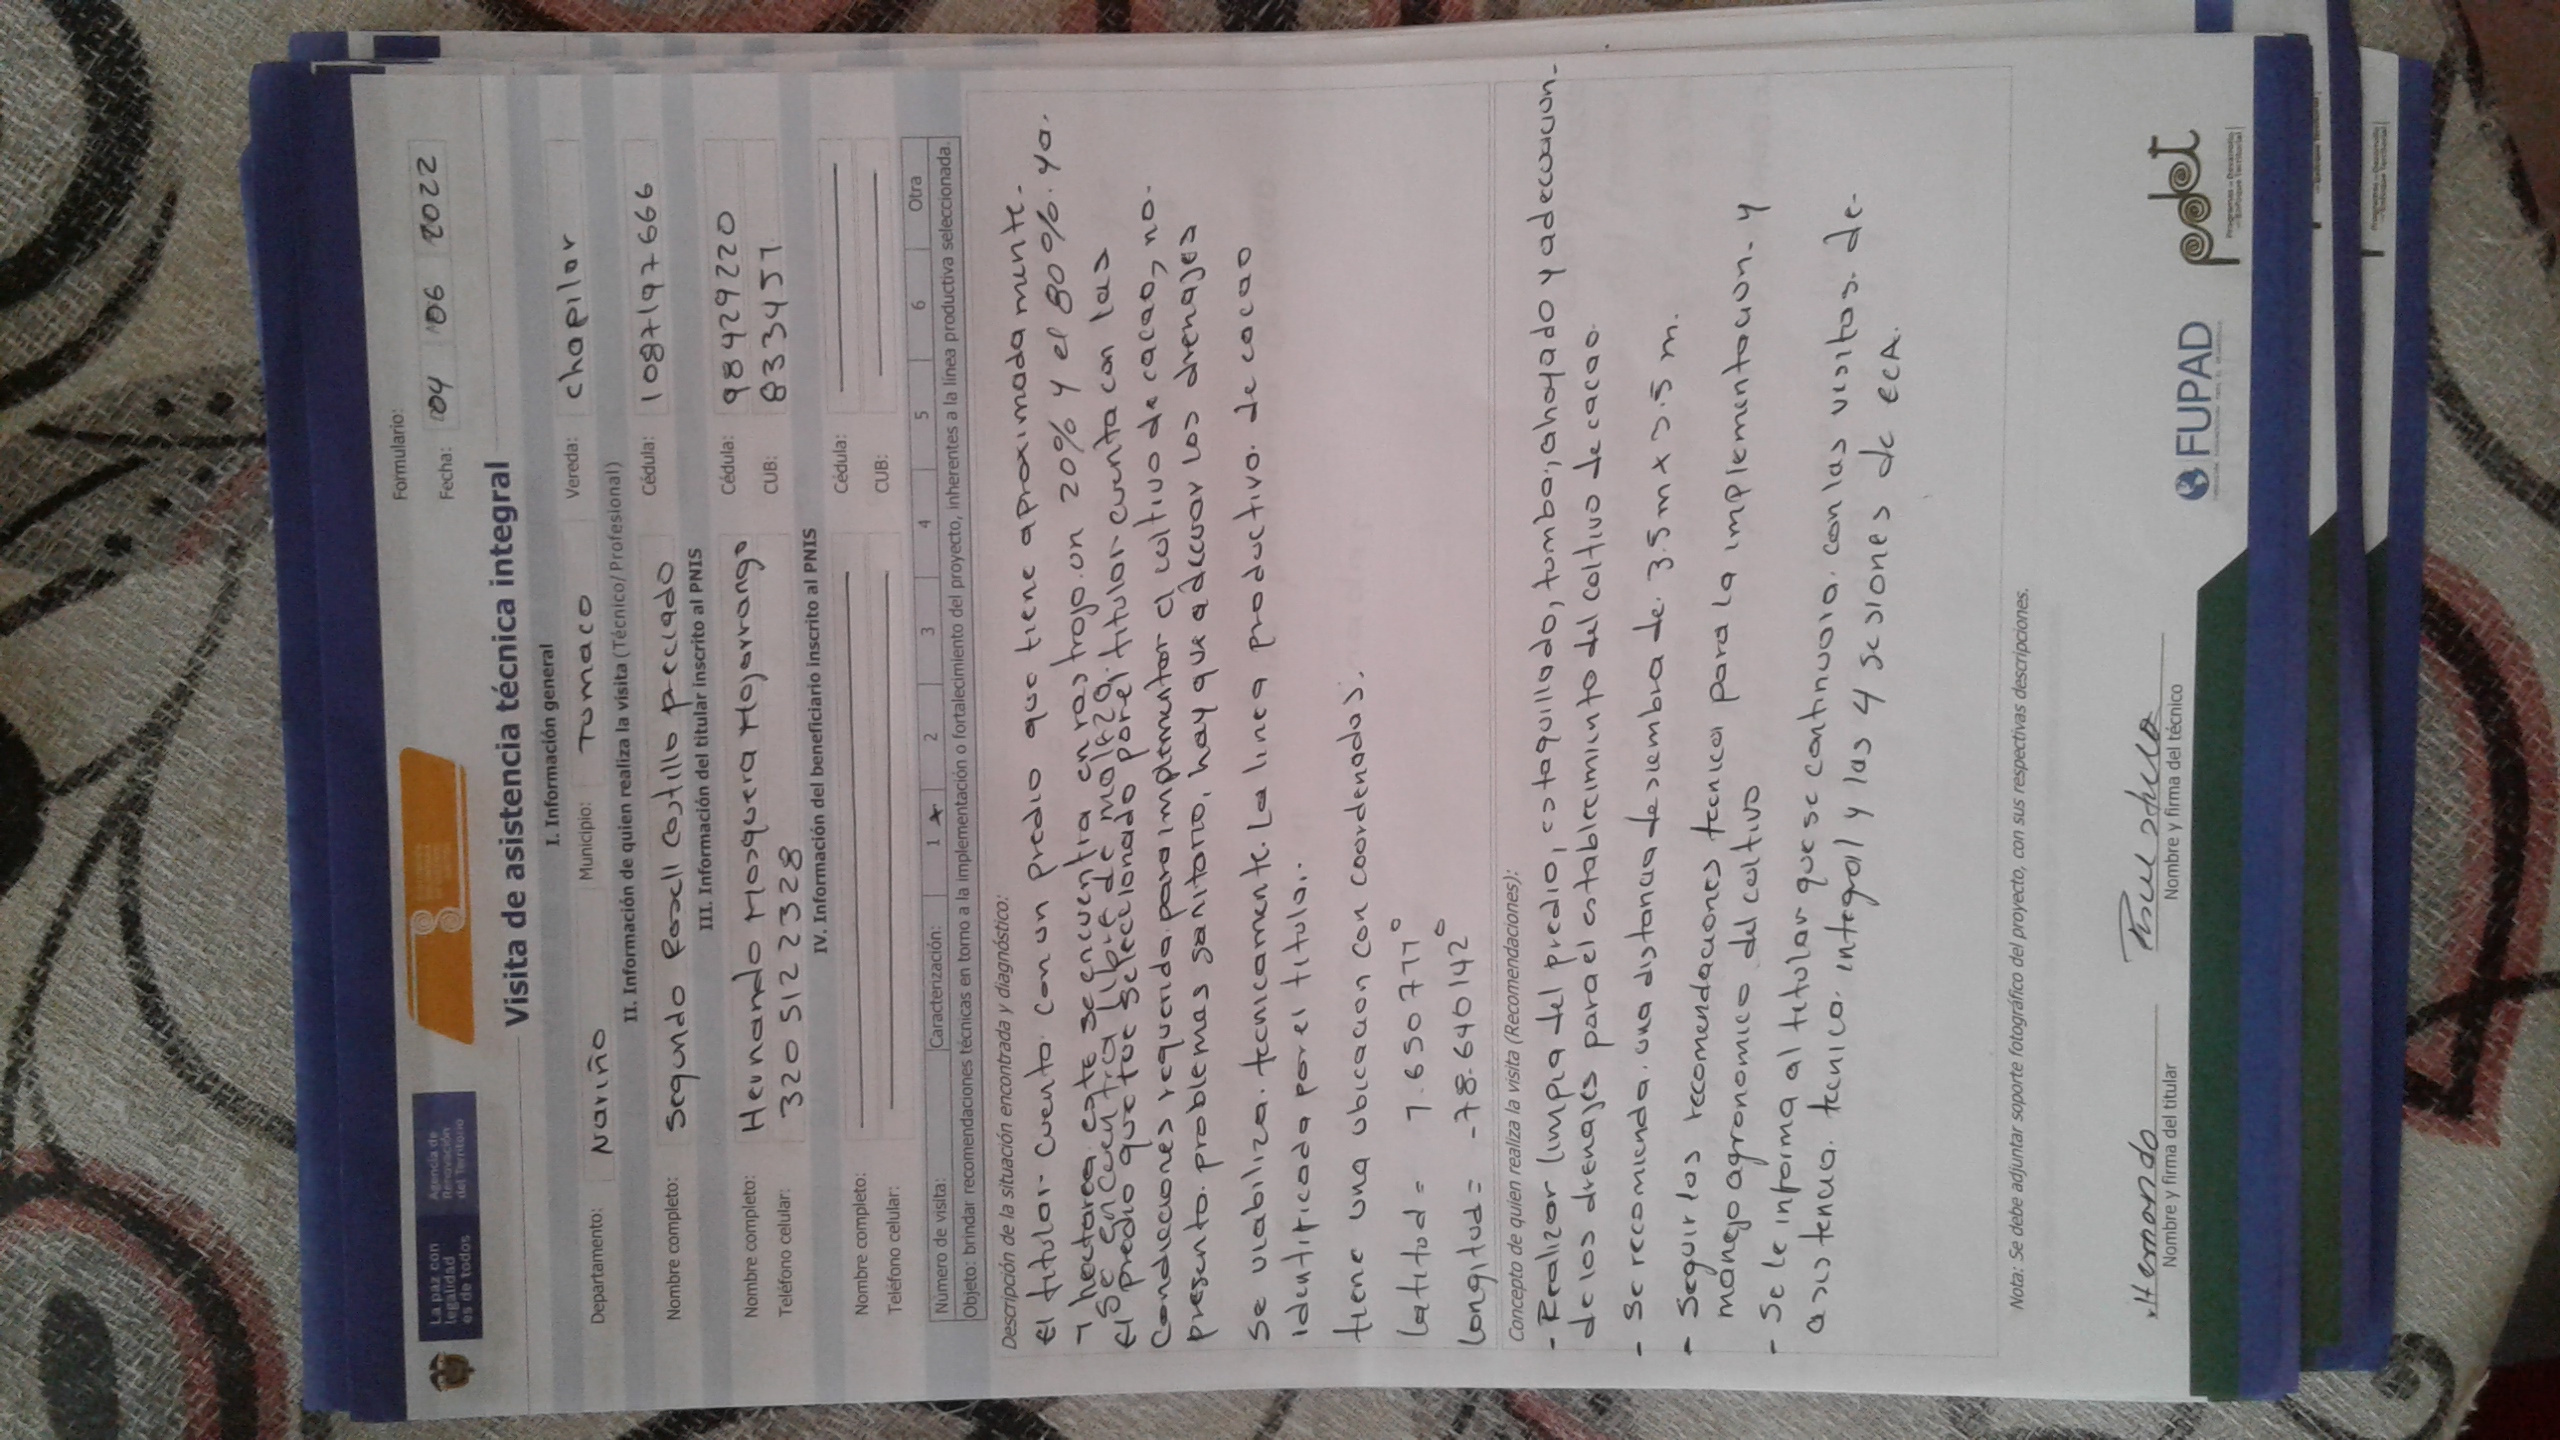 La paz con
legalidad
es de todos
Agencia de
Renovación
del Territorio
Formulario:
Fecha: 04 06 2022
Visita de asistencia técnica integral
I. Información general
Departamento: Nariño Municipio: Tumaco Vereda: chapilar
II. Información de quien realiza la visita (Técnico/Profesional)
Nombre completo: Segundo Pascll Castillo peciado Cédula: 1087197666
III. Información del titular inscrito al PNIS
Nombre completo: Hernando Mosquera Mojarrango Cédula: 98429220
Teléfono celular: 320 512 2328 CUB: 833451
IV. Información del beneficiario inscrito al PNIS
Nombre completo: Cédula:
Teléfono celular: CUB:
Número de visita: Caracterización: 1 x 2 3 4 5 6 Otra
Objeto: brindar recomendaciones técnicas en torno a la implementación o fortalecimiento del proyecto, inherentes a la línea productiva seleccionada.
Descripción de la situación encontrada y diagnóstico:
el titular cuenta con un predio que tiene aproximadamente.
1 hectarea. este se encuentra en rastrojo. un 20% y el 80%. ya.
se encuentra libre de maleza.
el predio que fue seleccionado por el titular cuenta con las
condiciones requerida para implementar el cultivo de cacao, no.
presenta. problemas sanitario, hay que adecuar los drenajes
se viabiliza. tecnicamente. La linea productiva. de cacao
identificada por el titular.
tiene una ubicacion con coordenadas.
latitud = 1.650771°
longitud = -78.640142°
Concepto de quien realiza la visita (Recomendaciones):
- Realizar limpia del predio, estaquillado, tumba, ahoyado y adecuacion.
de los drenajes para el establecimiento del cultivo de cacao.
- Se recomienda. una distancia de siembra de. 3.5 m x 3.5 m.
- Seguir las recomendaciones tecnica para la implementacion. y
manejo agronomico del cultivo
- Se le informa al titular que se continuara. con las visitas. de
asistencia. tecnica. integral y las 4 sesiones de ECA.
Nota: Se debe adjuntar soporte fotográfico del proyecto, con sus respectivas descripciones.
Hernando
Nombre y firma del titular Nombre y firma del técnico
FUPAD
pdet
Programas de Desarrollo
con Enfoque Territorial